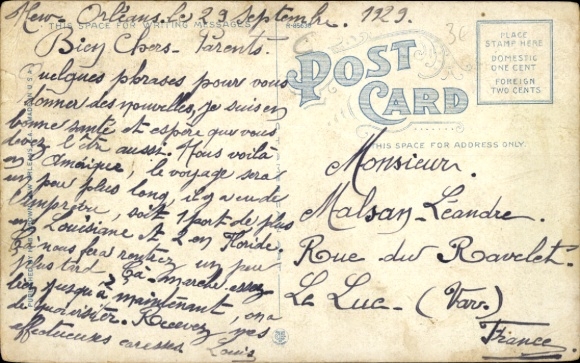 New-Orléans, le 29 Septembre. 1929.
THIS SPACE FOR WRITING MESSAGES
Bien Chers-Parents.
Quelques phrases pour vous
donner des nouvelles, je suis en
bonne santé et espère que vous
devez l'être aussi. Nous voilà
en Amérique, le voyage sera
un peu plus long, il y a eu de
l'imprévu, soit 1 port de plus
en Louisiane et 2 en Floride.
Ça nous fera rentrer un peu
plus tard. Ça marche assez
bien jusqu'à maintenant, on a
de quoi
Recevez mes
affectueuses caresses Louis
36
POST CARD
PLACE
STAMP HERE
DOMESTIC
ONE CENT
FOREIGN
TWO CENTS
THIS SPACE FOR ADDRESS ONLY.
Monsieur.
Malsan-Léandre.
Rue du Ravelet.
Le Luc-(Var.)
France